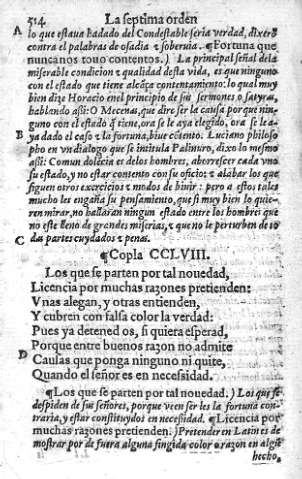 514 La septima orden
A lo que estaua hadado del Condestable seria verdad, dixero
contra el palabras de osadia ⁊ soberuia. ¶Fortuna que
nuncanos touo contentos.) La principal señal dela
miserable condicion ⁊ qualidad desta vida, es que ninguno
con el estado que tiene alcãça contentamiento: lo qual muy
bien dize Horacio enel principio de sus sermones o satyras,
hablando assi: O Mecenas, que dire ser la causa porque nin-
guno con el estado q̃ tiene, ora se le aya elegido, ora se le a-
B ya dado el caso ⁊ la fortuna, biue cõtento. Luciano philoso
pho en vn dialogo que se intitula Palinuro, dixo lo mesmo
assi: Comun dolẽcia es delos hombres, aborrescer cada vno
su estado, y no estar contento con su oficio: ⁊ alabar los que
siguen otros exercicios ⁊ modos de biuir: pero a estos tales
mucho les engaña su pensamiento, que si muy bien lo quie-
ren mirar, no hallaran ningun estado entre los hombres que
no este lleno de grandes miserias, ⁊ que no le perturben de to
C das partes cuydados ⁊ penas.
¶Copla CCLVIII.
Los que se parten por tal nouedad,
Licencia por muchas razones pretienden:
Vnas alegan, y otras entienden,
Y cubren con falsa color la verdad:
Pues ya detened os, si quiera esperad,
Porque entre buenos razon no admite
D Causas que ponga ninguno ni quite,
Quando el señor es en necessidad.
¶Los que se parten por tal nouedad.) Los que se
despiden de sus señores, porque veen ser les la fortuna con-
traria, y estar constituydos en necessidad. ¶Licencia por
muchas razones pretienden.) Pretender en Latin es de
mostrar por de fuera alguna fingida color o razon en algũ
hecho,